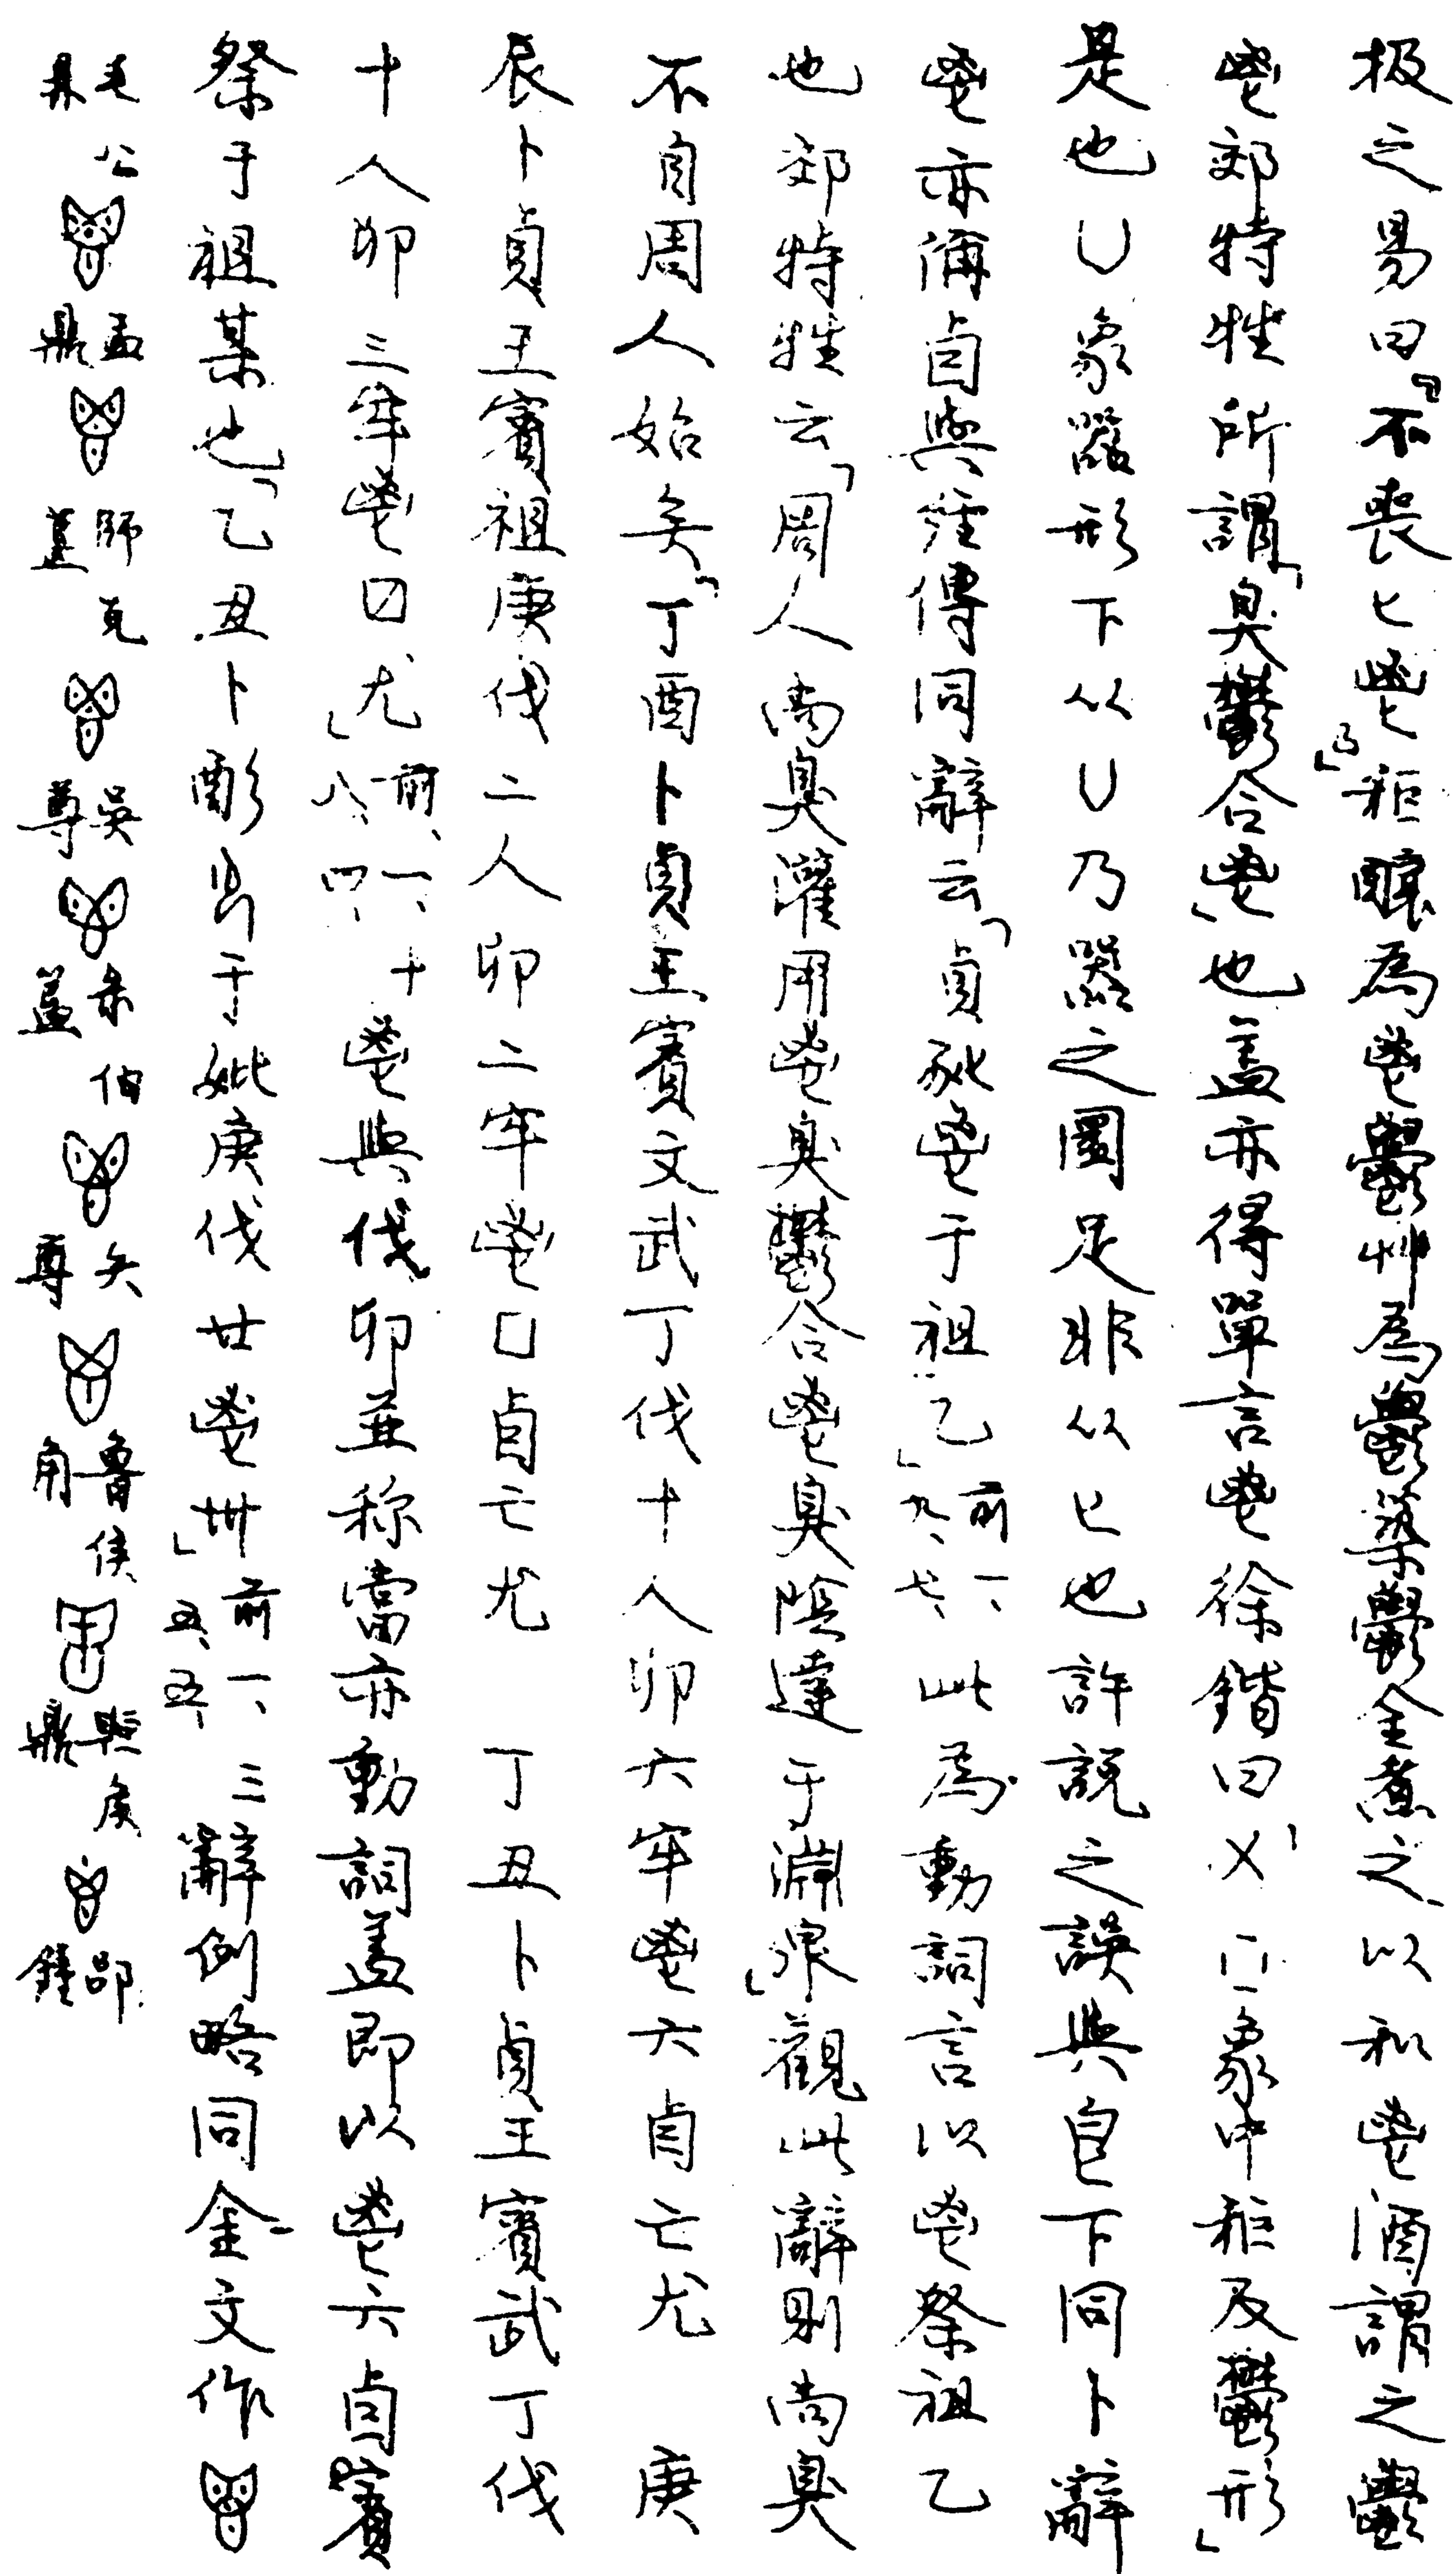 扱之易曰『不喪匕鬯』乃秬釀為鬯鬱艸為鬱築鬱金煮之以和鬯酒謂之鬱
鬯郊特牲所謂「臭鬱合鬯」也蓋亦得單言鬯徐鍇曰「㐅凵象中秬及鬱形」
是也凵象器形下从凵乃器之圈足非从匕也許說之誤與皀下同卜辭
鬯亦偁卣與經傳同辭云「貞𣦼鬯于祖乙」前一、九、七、此為動詞言以鬯祭祖乙
也郊特牲云「周人尚臭灌用鬯臭鬱合鬯臭陰達于淵泉」觀此辭則尚臭
不自周人始矣「丁酉卜貞王賓文武丁伐十人卯六牢鬯六卣亡尤 庚
辰卜貞王賓祖庚伐二人卯二牢鬯囗卣亡尤 丁丑卜貞王賓武丁伐
十人卯三牢鬯囗尤」前、一、十八、四、鬯與伐卯並称當亦動詞蓋即以鬯六卣賓
祭于祖某也「乙丑卜酌于妣庚伐廿鬯卅」前一、五、五、三辭例略同金文作
毛公鼎 盂鼎 師克盨 吳尊 彔伯蓋 矢尊 魯侯角 鼎 鐘